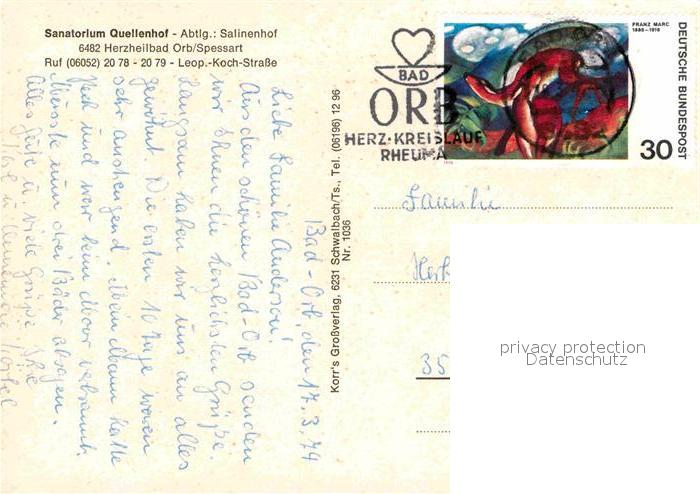 Sanatorium Quellenhof - Abtlg.: Salinenhof
6482 Herzheilbad Orb/Spessart
Ruf (06052) 20 78 - 20 79 - Leop.-Koch-Straße
Bad-Orb, den 17.3.74
Liebe Familie Anderson!
Aus dem schönen Bad-Orb senden
wir Ihnen die herzlichsten Grüße.
Langsam haben wir uns an alles
gewöhnt. Die ersten 10 Tage waren
sehr anstrengend. Mein Mann hatte
Pech und war beim Moor verbrannt.
Musste nun drei Bäder absagen.
Alles Gute u. viele Grüße Ihre
Korr's Großverlag, 6231 Schwalbach/Ts., Tel. (06196) 12 96
Nr. 1036
BAD
ORB
HERZ·KREISLAUF
RHEUMA
FRANZ MARC
1880-1916
DEUTSCHE BUNDESPOST
30
1974
Familie
35
privacy protection
Datenschutz